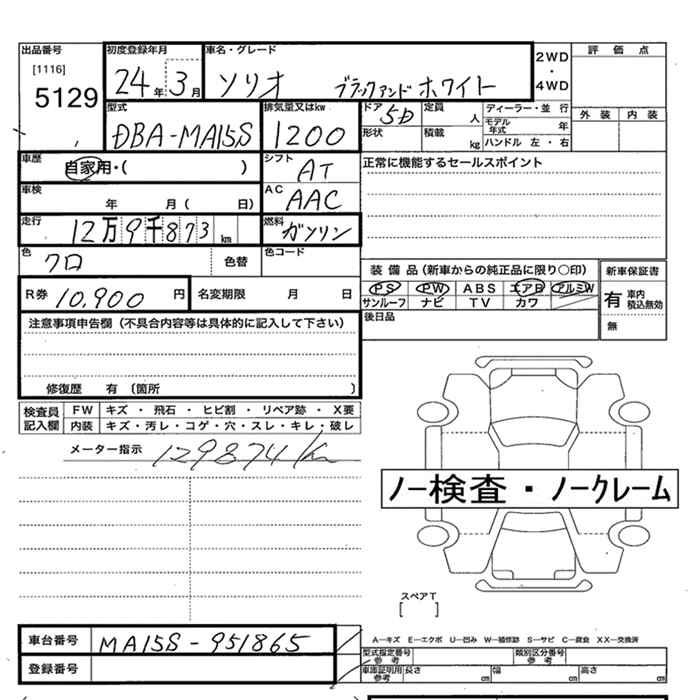 出品番号 初度登録年月 車名・グレード 2WD ・ 4WD 評価点
[1116]
5129 24年 3月 ソリオ ブラックアンドホワイト
型式 排気量又はkw ドア 5D 定員 人 ディーラー・並 行 外装 内装
DBA-MA15S 1200 形状 積載 kg モデル年式 年
ハンドル 左・右
車歴 自家用・( ) シフト AT 正常に機能するセールスポイント
車検 年 月 ( 日) AC AAC
走行 12万9千873 km 燃料 ガソリン
色 クロ 色替 色コード
装備品(新車からの純正品に限り○印) 新車保証書
R券 10,900 円 名変期限 月 日 PS PW ABS エアB アルミW 有 車内積込無効
サンルーフ ナビ TV カワ
無
注意事項申告欄(不具合内容等は具体的に記入して下さい) 後日品
修復歴 有 〔箇所 〕
検査員記入欄 FW キズ・飛石・ヒビ割・リペア跡・X要
内装 キズ・汚レ・コゲ・穴・スレ・キレ・破レ
メーター指示 129874 km
ノー検査・ノークレーム
スペアT
[ ]
車台番号 MA15S-951865 A―キズ E―エクボ U―凹み W―補修跡 S―サビ C―腐食 XX―交換済
型式指定番号 参考 類別区分番号 参考
登録番号 車庫証明用 参考 長さ cm 幅 cm 高さ cm